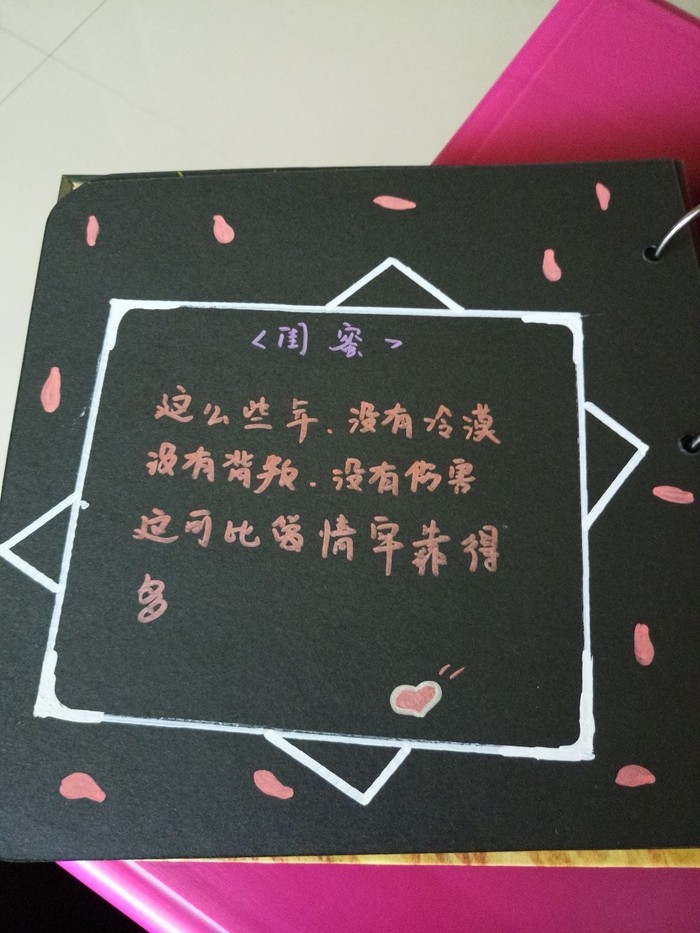 <闺蜜>
这么些年.没有冷漠
没有背叛.没有伤害
这可比爱情牢靠得
多